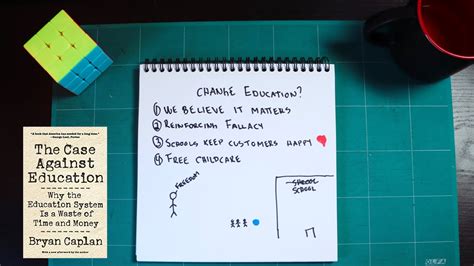 CHANGE EDUCATION?
① WE BELIEVE IT MATTERS
② REINFORCING FALLACY
③ SCHOOLS KEEP CUSTOMERS HAPPY
④ FREE CHILDCARE
FREEDOM
SCHOOL
The Case
Against
Education
Why the
Education System
Is a Waste of
Time and Money
Bryan Caplan
With a new afterword by the author
OLFA